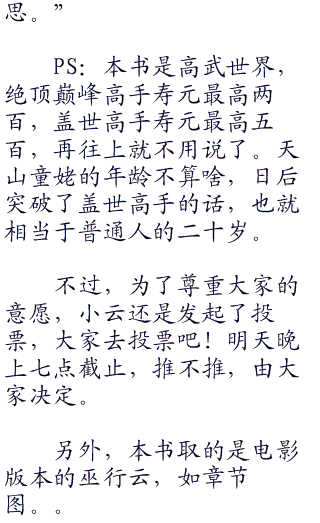 思。”
PS：本书是高武世界，
绝顶巅峰高手寿元最高两
百，盖世高手寿元最高五
百，再往上就不用说了。天
山童姥的年龄不算啥，日后
突破了盖世高手的话，也就
相当于普通人的二十岁。
不过，为了尊重大家的
意愿，小云还是发起了投
票，大家去投票吧！明天晚
上七点截止，推不推，由大
家决定。
另外，本书取的是电影
版本的巫行云，如章节
图。。